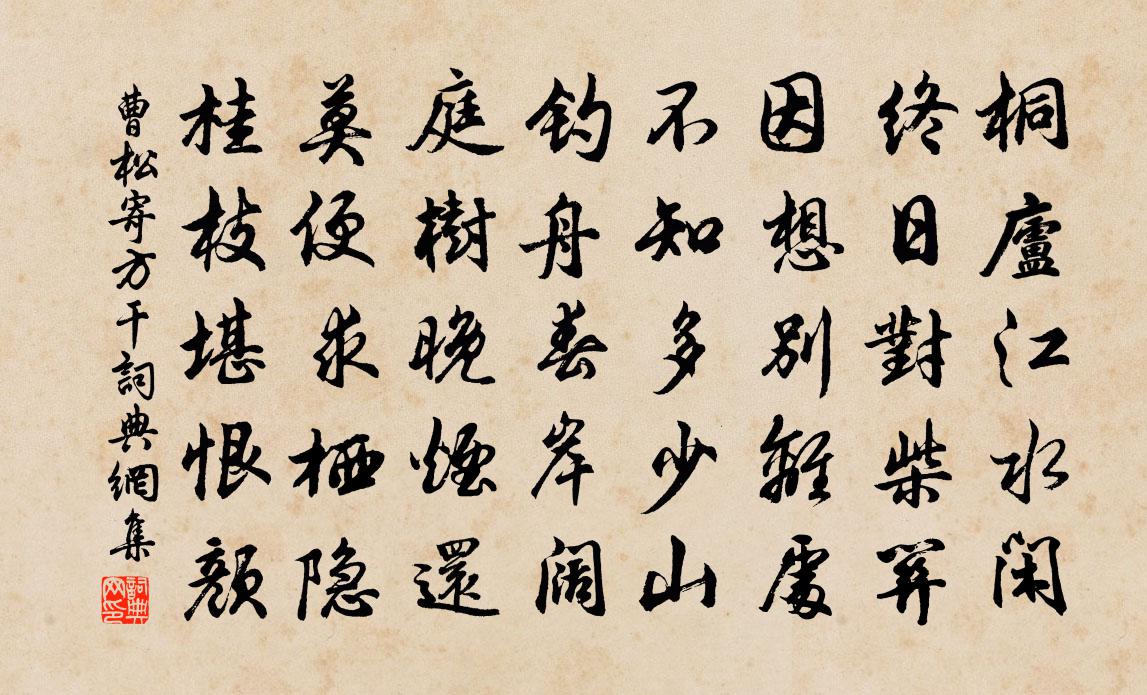 桐廬江水閑
終日對柴關
因想別離處
不知多少山
釣舟春岸闊
庭樹晚煙還
莫便求栖隐
桂枝堪恨顏
曹松寄方干詞典網集
詞典网印